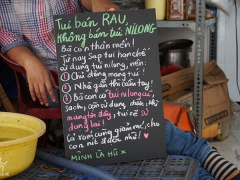 Tui bán RAU,
không bán túi NILONG
Bà con thân mến!
Từ nay Sạp tui hạn chế
sử dụng túi nilong, nên:
① Chủ động mang túi
② Nhỏ gắn thì cầm tay!
③ Bà con có túi nilong cũ,
sạch, còn sử dụng được, thì
mang tới đây, tui sẽ sử
dụng lại!
Cà rom cùng giảm mí, cho
con nít được nhờ!
MÌNH LÀ HŨ